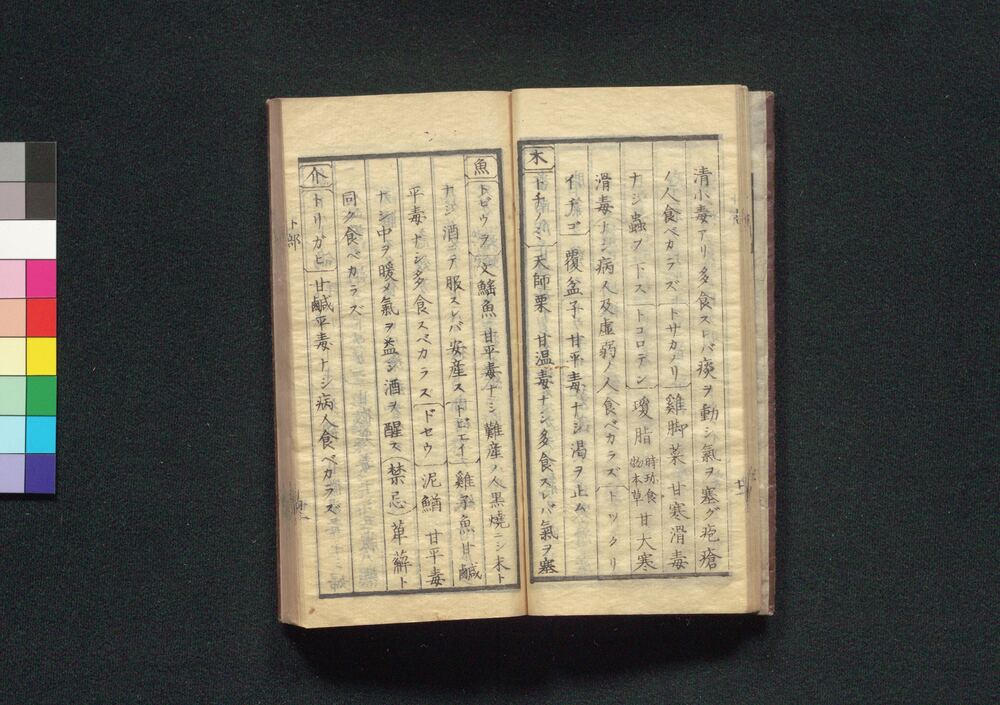 清小毒アリ多食スレバ痰ヲ動シ氣ヲ塞グ疱瘡
ノ人食ベカラズ トサカノリ 雞脚菜 甘寒滑毒
ナシ蟲ヲ下ス トコロテン 瓊脂 時珍食物本草 甘大寒
滑毒ナシ病人及虚弱ノ人食ベカラズ トックリ
イチゴ 覆盆子 甘平毒ナシ渇ヲ止ム
木 トチノミ 天師栗 甘温毒ナシ多食スレバ氣ヲ塞
魚 トビウヲ 文鰩魚 甘平毒ナシ難産ノ人黒焼ニシ末ト
ナシ酒ニテ服スレバ安産ス トビエイ 雞子魚 甘鹹
平毒ナシ多食スベカラズ ドセウ 泥鰌 甘平毒
ナシ中ヲ暖メ氣ヲ益シ酒ヲ醒ス 禁忌 草薢ト
同ク食ベカラズ
介 トリガヒ 甘鹹平毒ナシ病人食ベカラズ
ト部